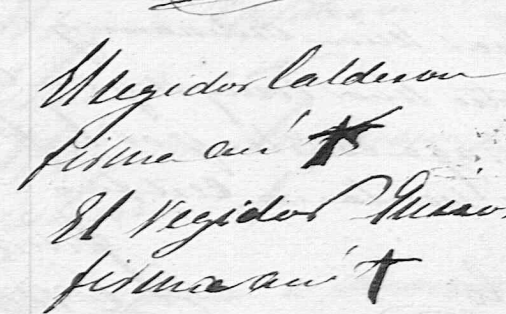 El regidor Calderon
firma así ✝
El regidor
firma así ✝